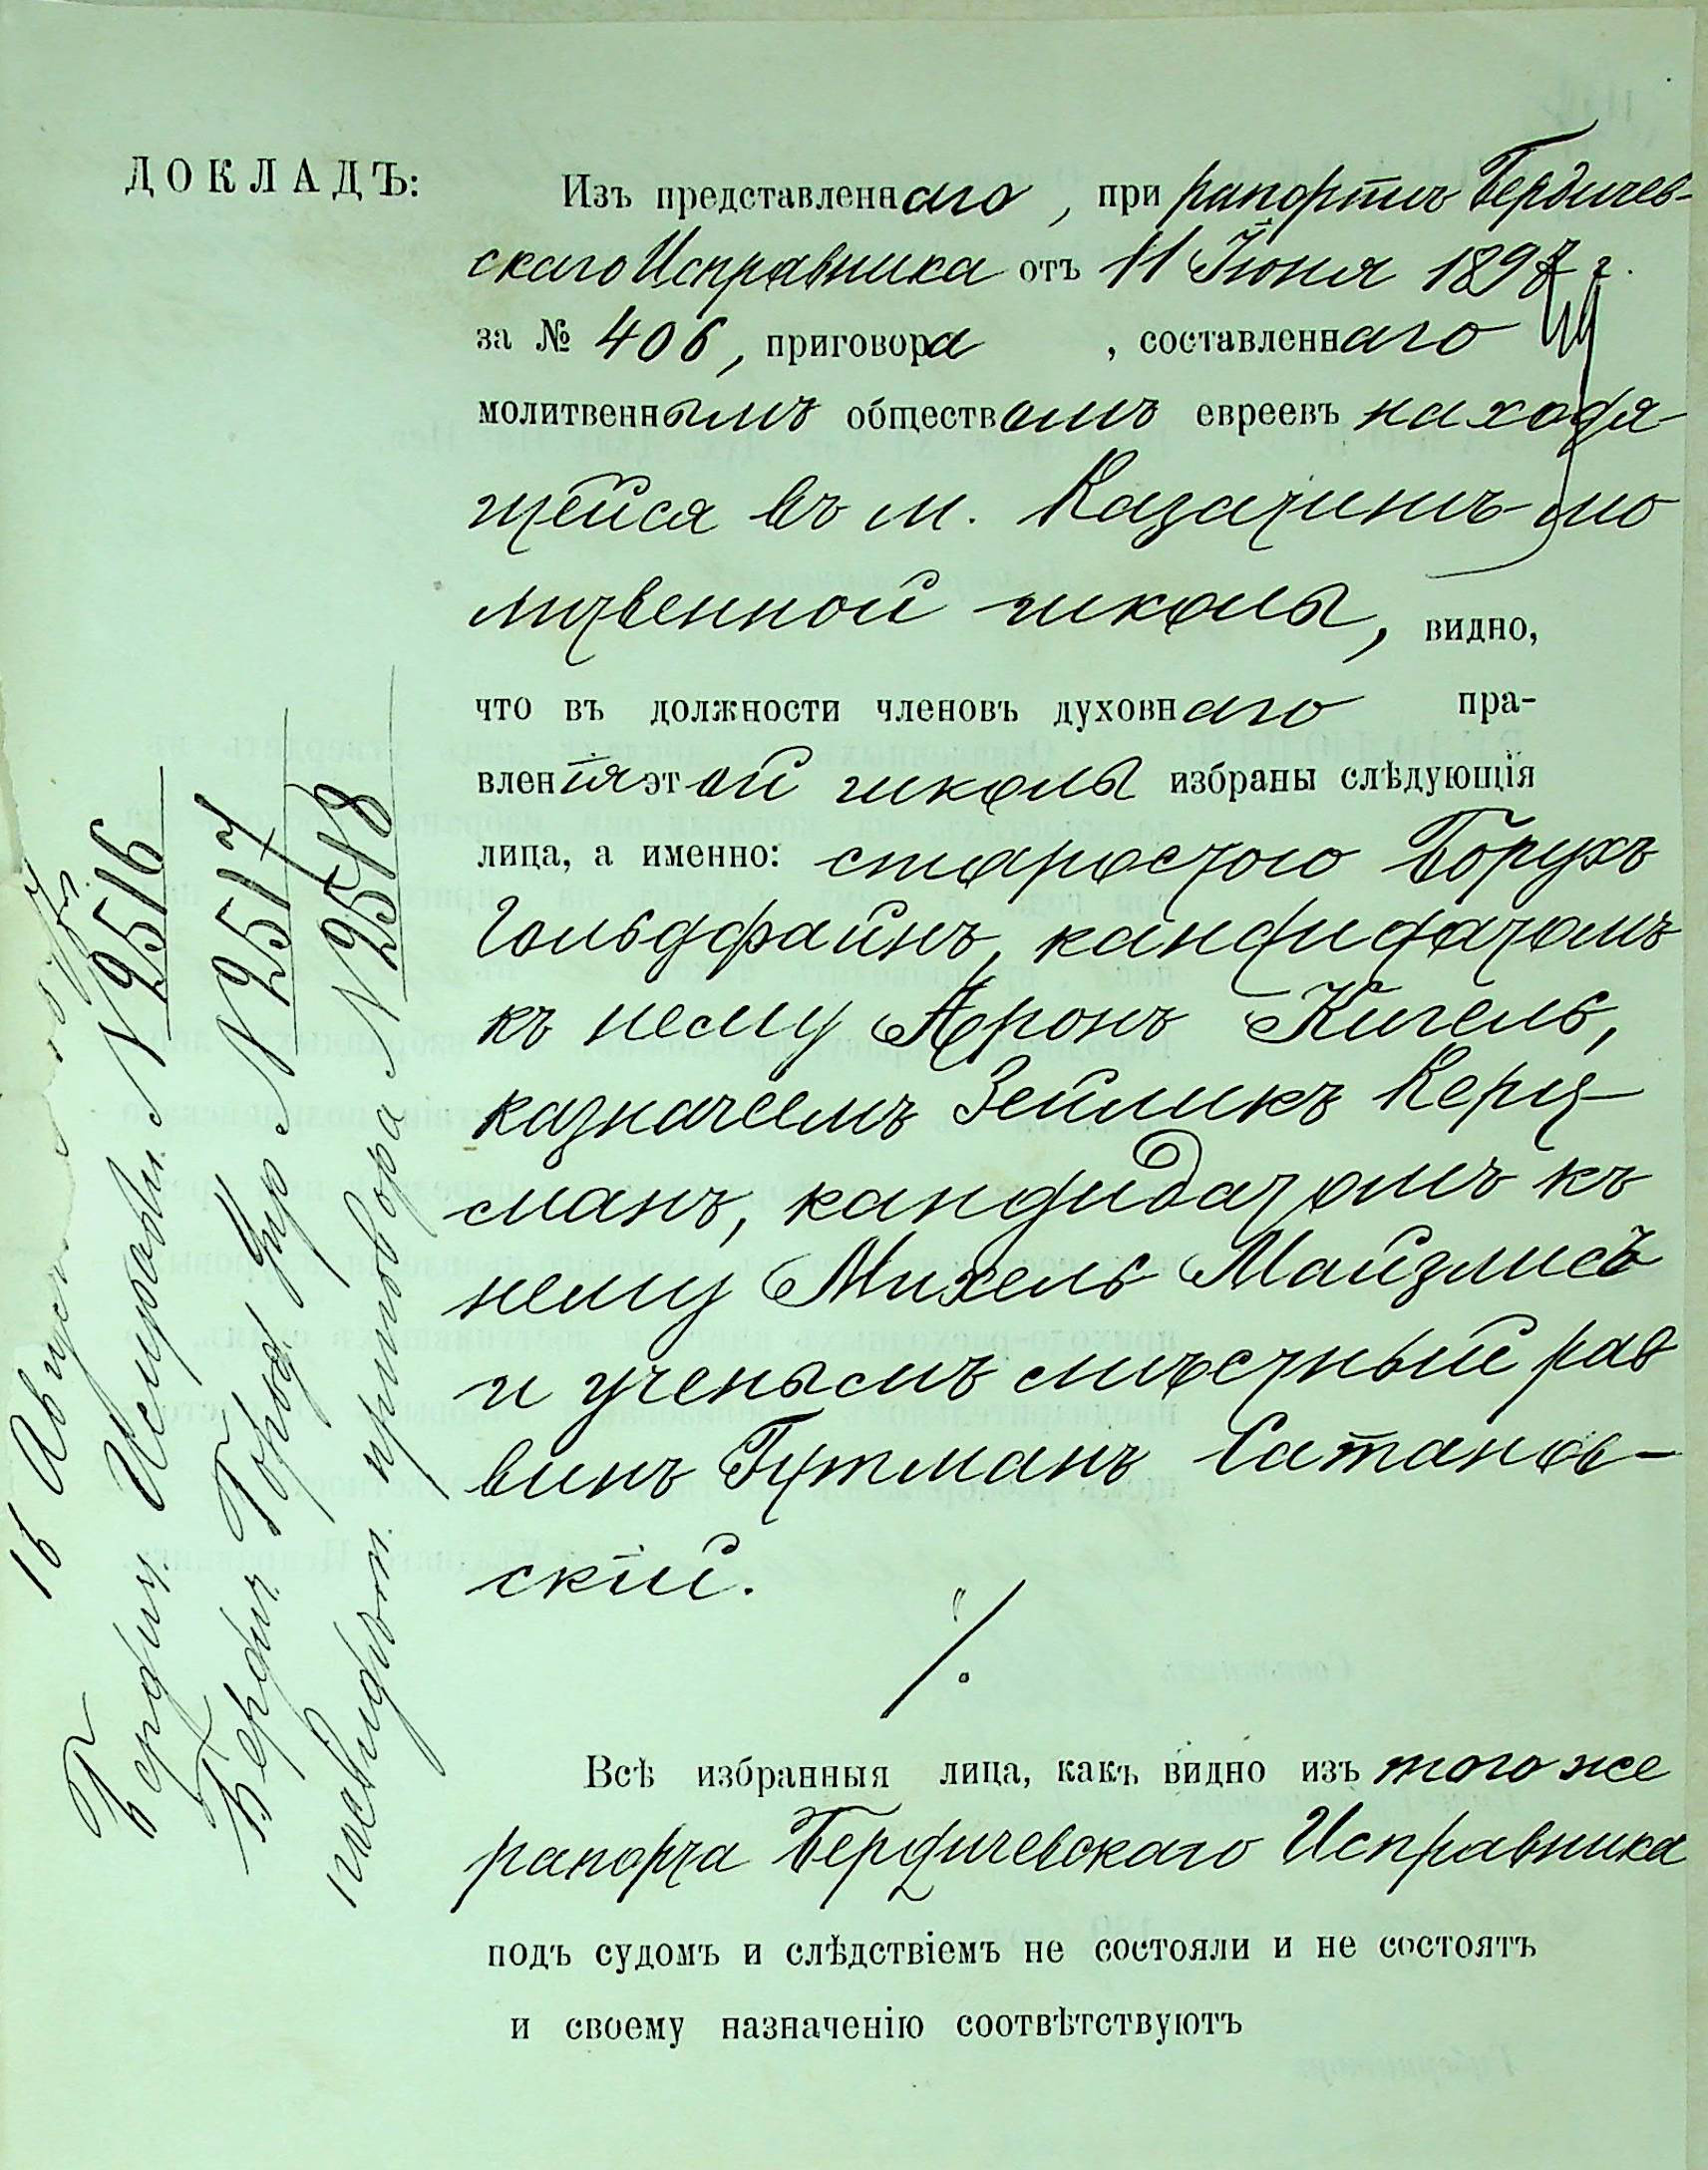 ДОКЛАДЪ:
Изъ представленнаго, при рапортѣ Бердичев-
скаго Исправника отъ 11 Іюня 1897 г.
за № 406, приговора, составленнаго
молитвеннымъ обществомъ евреевъ находя-
щейся въ м. Казатинѣ мо
литвенной школы, видно,
что въ должности членовъ духовнаго пра-
вленія этой школы избраны слѣдующія
лица, а именно: старостою Борухъ
Гольдфайнъ, кандидатомъ
къ нему Аронъ Кигель,
казначеемъ Зейликъ Керц-
манъ, кандидатомъ къ
нему Михель Майзлисъ
и ученымъ мѣстный рав
винъ Гутманъ Сатанов-
скій.
Всѣ избранныя лица, какъ видно изъ того же
рапорта Бердичевскаго Исправника
подъ судомъ и слѣдствіемъ не состояли и не состоятъ
и своему назначенію соотвѣтствуютъ
16 Август
Бердич. Исправн. N 2516
Бердич. Город. Упр. N 2517
приговора N 2518